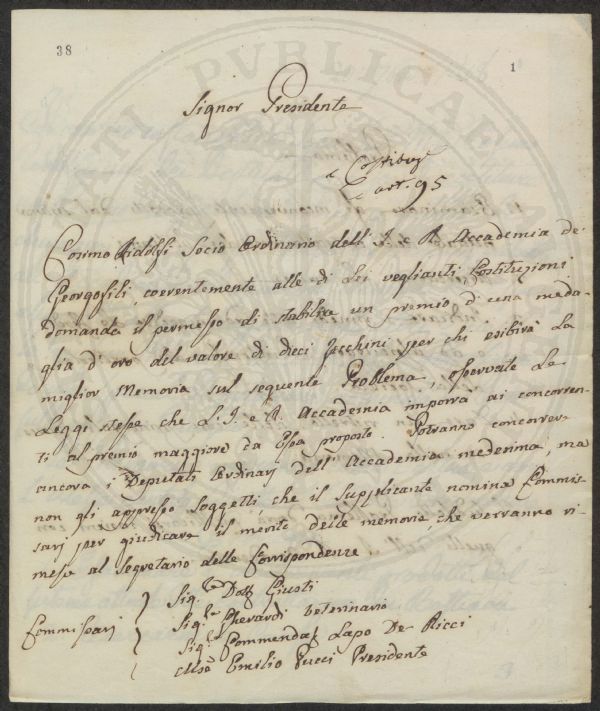 38
1
Signor Presidente
a Costituz.
art. 95
Cosimo Ridolfi Socio Ordinario dell' I. e R. Accademia de
Georgofili, coerentemente alle di Lei veglianti Costituzioni
domanda il permesso di stabilire un premio d'una meda-
glia d'oro del valore di dieci Zecchini per chi esibirà La
miglior Memoria sul seguente Problema, osservate Le
Leggi stesse che L'I. e R. Accademia imporrà ai concorren-
ti al premio maggiore da Essa proposto. Potranno concorrer-
ancora i Deputati Ordinarj dell' Accademia medesima, ma
non gli appresso soggetti, che il supplicante nomina Commis-
sarj per giudicare il merito delle memorie che verranno ri-
messe al Segretario delle Corrispondenze.
Commissarj
Sig.re Dott. Giusti
Sig.re Gherardi Veterinario
Sig.re Commendat. Lapo De Ricci
Emilio Pucci Presidente
PVBLICAE